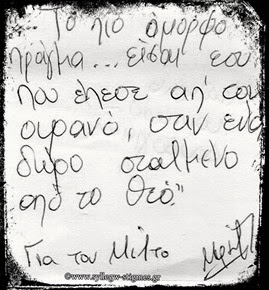 Το πιό όμορφο
πράγμα... είσαι εσύ
που έπεσε απ' τον
ουρανό, σαν ένα
δώρο σταλμένο
από το Θεό."
Για τον Μίλτο
©www.syllegw-stigmes.gr